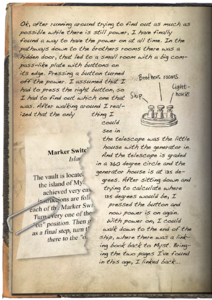 Ok, after running around trying to find out as much as
possible while there is still power, I have finally
found a way to have the power on at all time. In the
pathways down to the brothers rooms there was a
hidden door, that led to a small room with a big com-
passible plate with buttons on
its edge. Pressing a button turned
off the power. I assumed that I
had to press the right button, so
I had to find out which one that
was. After walking around I rea-
lized that the only thing I
could
see in
the telescope was the little
house with the generator in.
find the telescope is graded
in a 360 degree circle and the
generator house is at 135 de-
grees. After sitting down and
trying to calculate where
135 degrees would be, I
pressed the button and
now power is on again.
With power on, I could
walk down to the end of the
ship, where there was a link-
ing book back to Myst. Bring-
ing the two pages I've found
in this age, I linked back...
Brothers rooms
Ship
Light-
house
Marker Swit
Islan
The vault is located
the island of Myst
achieved very eas
instructions are
each of the Marker Swi
Turn every one of the
on" position. Then
as a final step, turn t
there to the